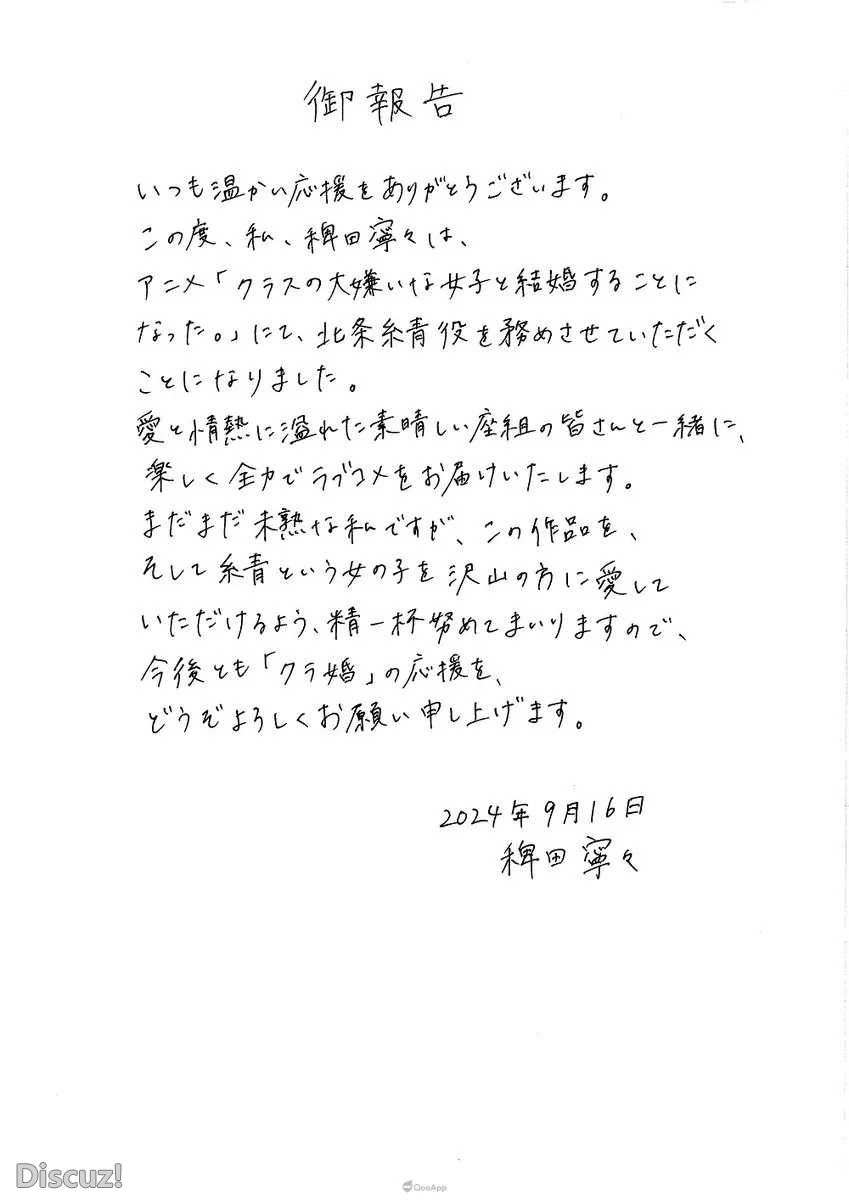 御報告
いつも温かい応援をありがとうございます。
この度、私、稗田寧々は、
アニメ「クラスの大嫌いな女子と結婚することに
なった。」にて、北条糸青役を務めさせていただく
ことになりました。
愛と情熱に溢れた素晴しい座組の皆さんと一緒に、
楽しく全力でラブコメをお届けいたします。
まだまだ未熟な私ですが、この作品を、
そして糸青という女の子を沢山の方に愛して
いただけるよう、精一杯努めてまいりますので、
今後とも「クラ婚」の応援を、
どうぞよろしくお願い申し上げます。
2024年9月16日
稗田寧々
Discuz!
QooApp